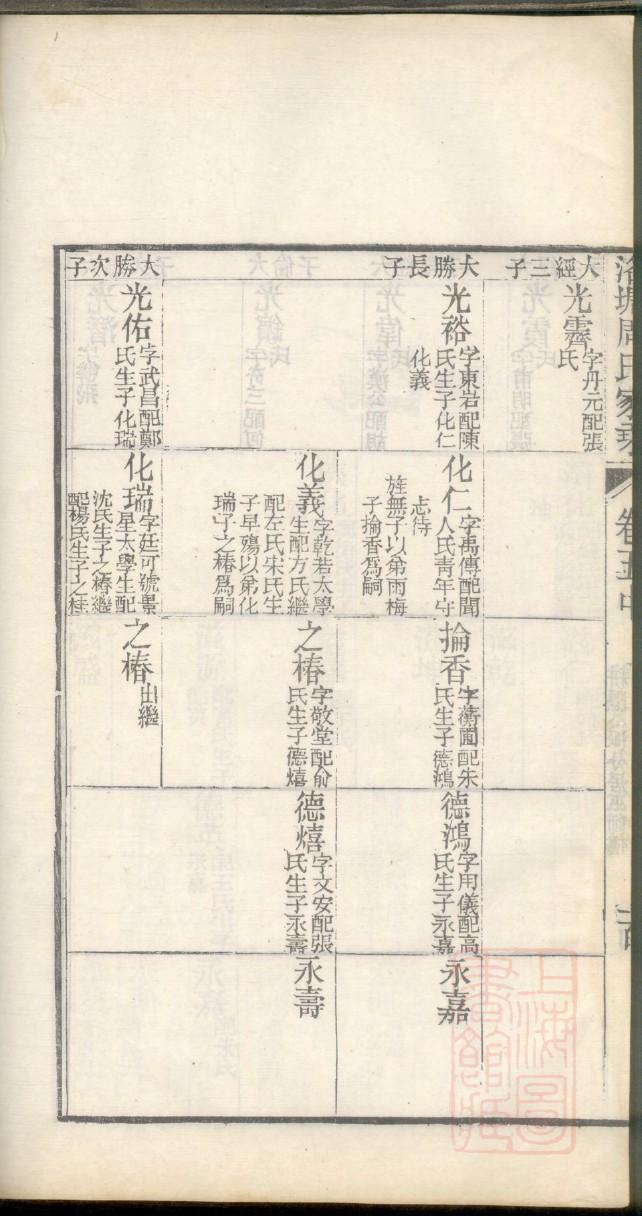 周氏家
卷五中
大經三子
光霽
字丹元配張
氏
大勝長子
光裕
字東岩配陳
氏生子化仁
化義
化仁
字禹傳配聞
人氏靑年守
志待
旌無子以弟雨梅
子掄香爲嗣
掄香
字蘅圃配朱
氏生子德鴻
德鴻
字用儀配高
氏生子永嘉
永嘉
化義
字乾若太學
生配方氏繼
配左氏宋氏生
子早殤以弟化
瑞子之椿爲嗣
之椿
字敬堂配俞
氏生子德熺
德熺
字文安配張
氏生子永壽
永壽
大勝次子
光佑
字武昌配鄭
氏生子化瑞
化瑞
字廷可號景
星太學生配
沈氏生子之椿繼
配楊氏生子之桂
之椿
出繼
上海圖書館藏